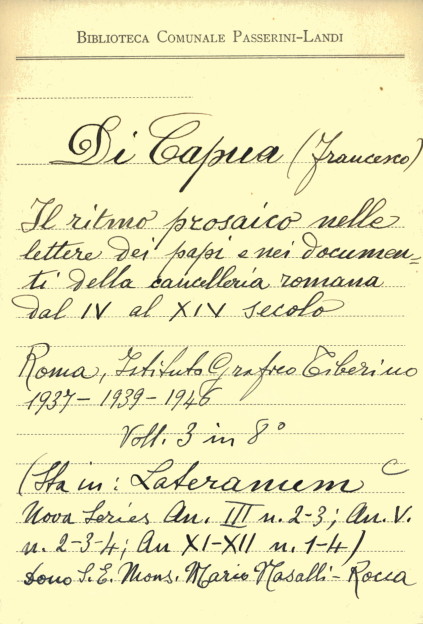 BIBLIOTECA COMUNALE PASSERINI-LANDI
Di Capua (Francesco)
Il ritmo prosaico nelle
lettere dei papi e nei documen=
ti della cancelleria romana
dal IV al XIV secolo
Roma, Istituto Grafico Tiberino
1937 - 1939 - 1946
Voll. 3 in 8°
(Sta in: Lateranum C
Nova Series An. III n. 2-3; An. V.
n. 2-3-4; An XI-XII n. 1-4)
Dono S. E. Mons. Mario Nasalli-Rocca